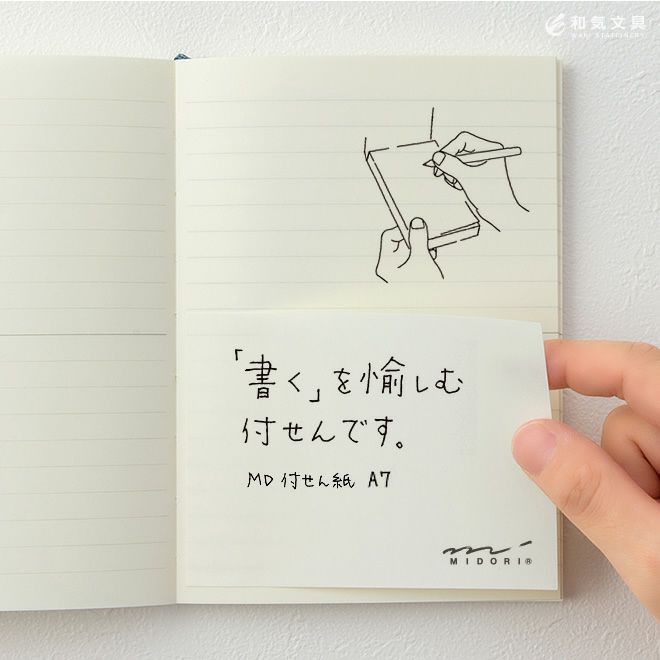 和気文具
WAKI STATIONERY
「書く」を愉しむ
付せんです。
MD 付せん紙 A7
MIDORI®